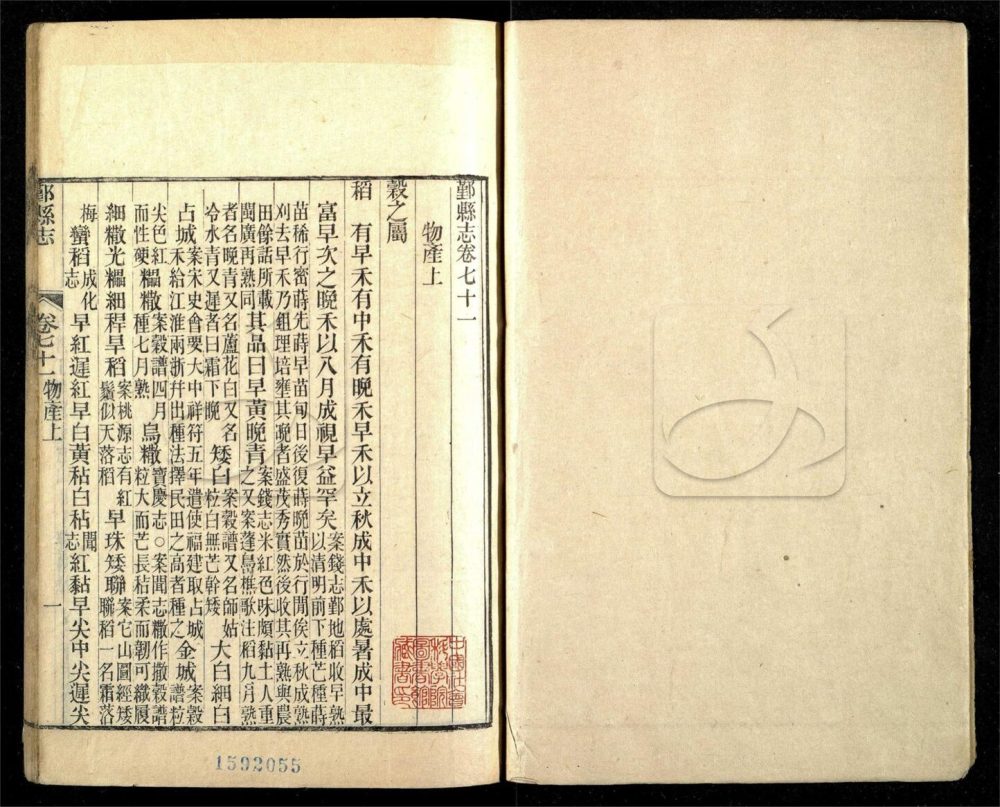 鄞縣志卷七十一
物產上
穀之屬
稻　有早禾有中禾有晚禾早禾以立秋成中禾以處暑成中最
富早次之晚禾以八月成視早益罕矣案錢志鄞地稻收早熟
以清明前下種芒種蒔
苗稀行密蒔先蒔早苗旬日後復蒔晚苗於行閒俟立秋成熟
刈去早禾乃鉏理培壅其晚者盛茂秀實然後收其再熟與農
田餘話所載
閩廣再熟同其品曰早黃晚青案錢志米紅色味頗黏土人重
之又案蓬島樵歌注稻九月熟
者名晚青又名蘆花白又名
冷水青又遲者曰霜下晚矮白案穀譜又名師姑
粒白無芒稈矮大白細白
占城案宋史會要大中祥符五年遣使福建取占城
禾給江淮兩浙幷出種法擇民田之高者種之金城案穀
譜粒
尖色紅
而性硬糯糤案穀譜四月
種七月熟烏糤寶慶志○案聞志糤作撒穀譜
粒大而芒長秸柔而韌可織履
細糤光糯細稈旱稻案桃源志有紅
鬚似天落稻早珠矮聯案它山圖經矮
聯稻一名霜落
梅蠻稻成化
志早紅遲紅早白黃秥白秥聞
志紅黏早尖中尖遲尖
鄞縣志
卷七十一物產上
一
中國社會
科學院
圖書館
藏書印
1592055